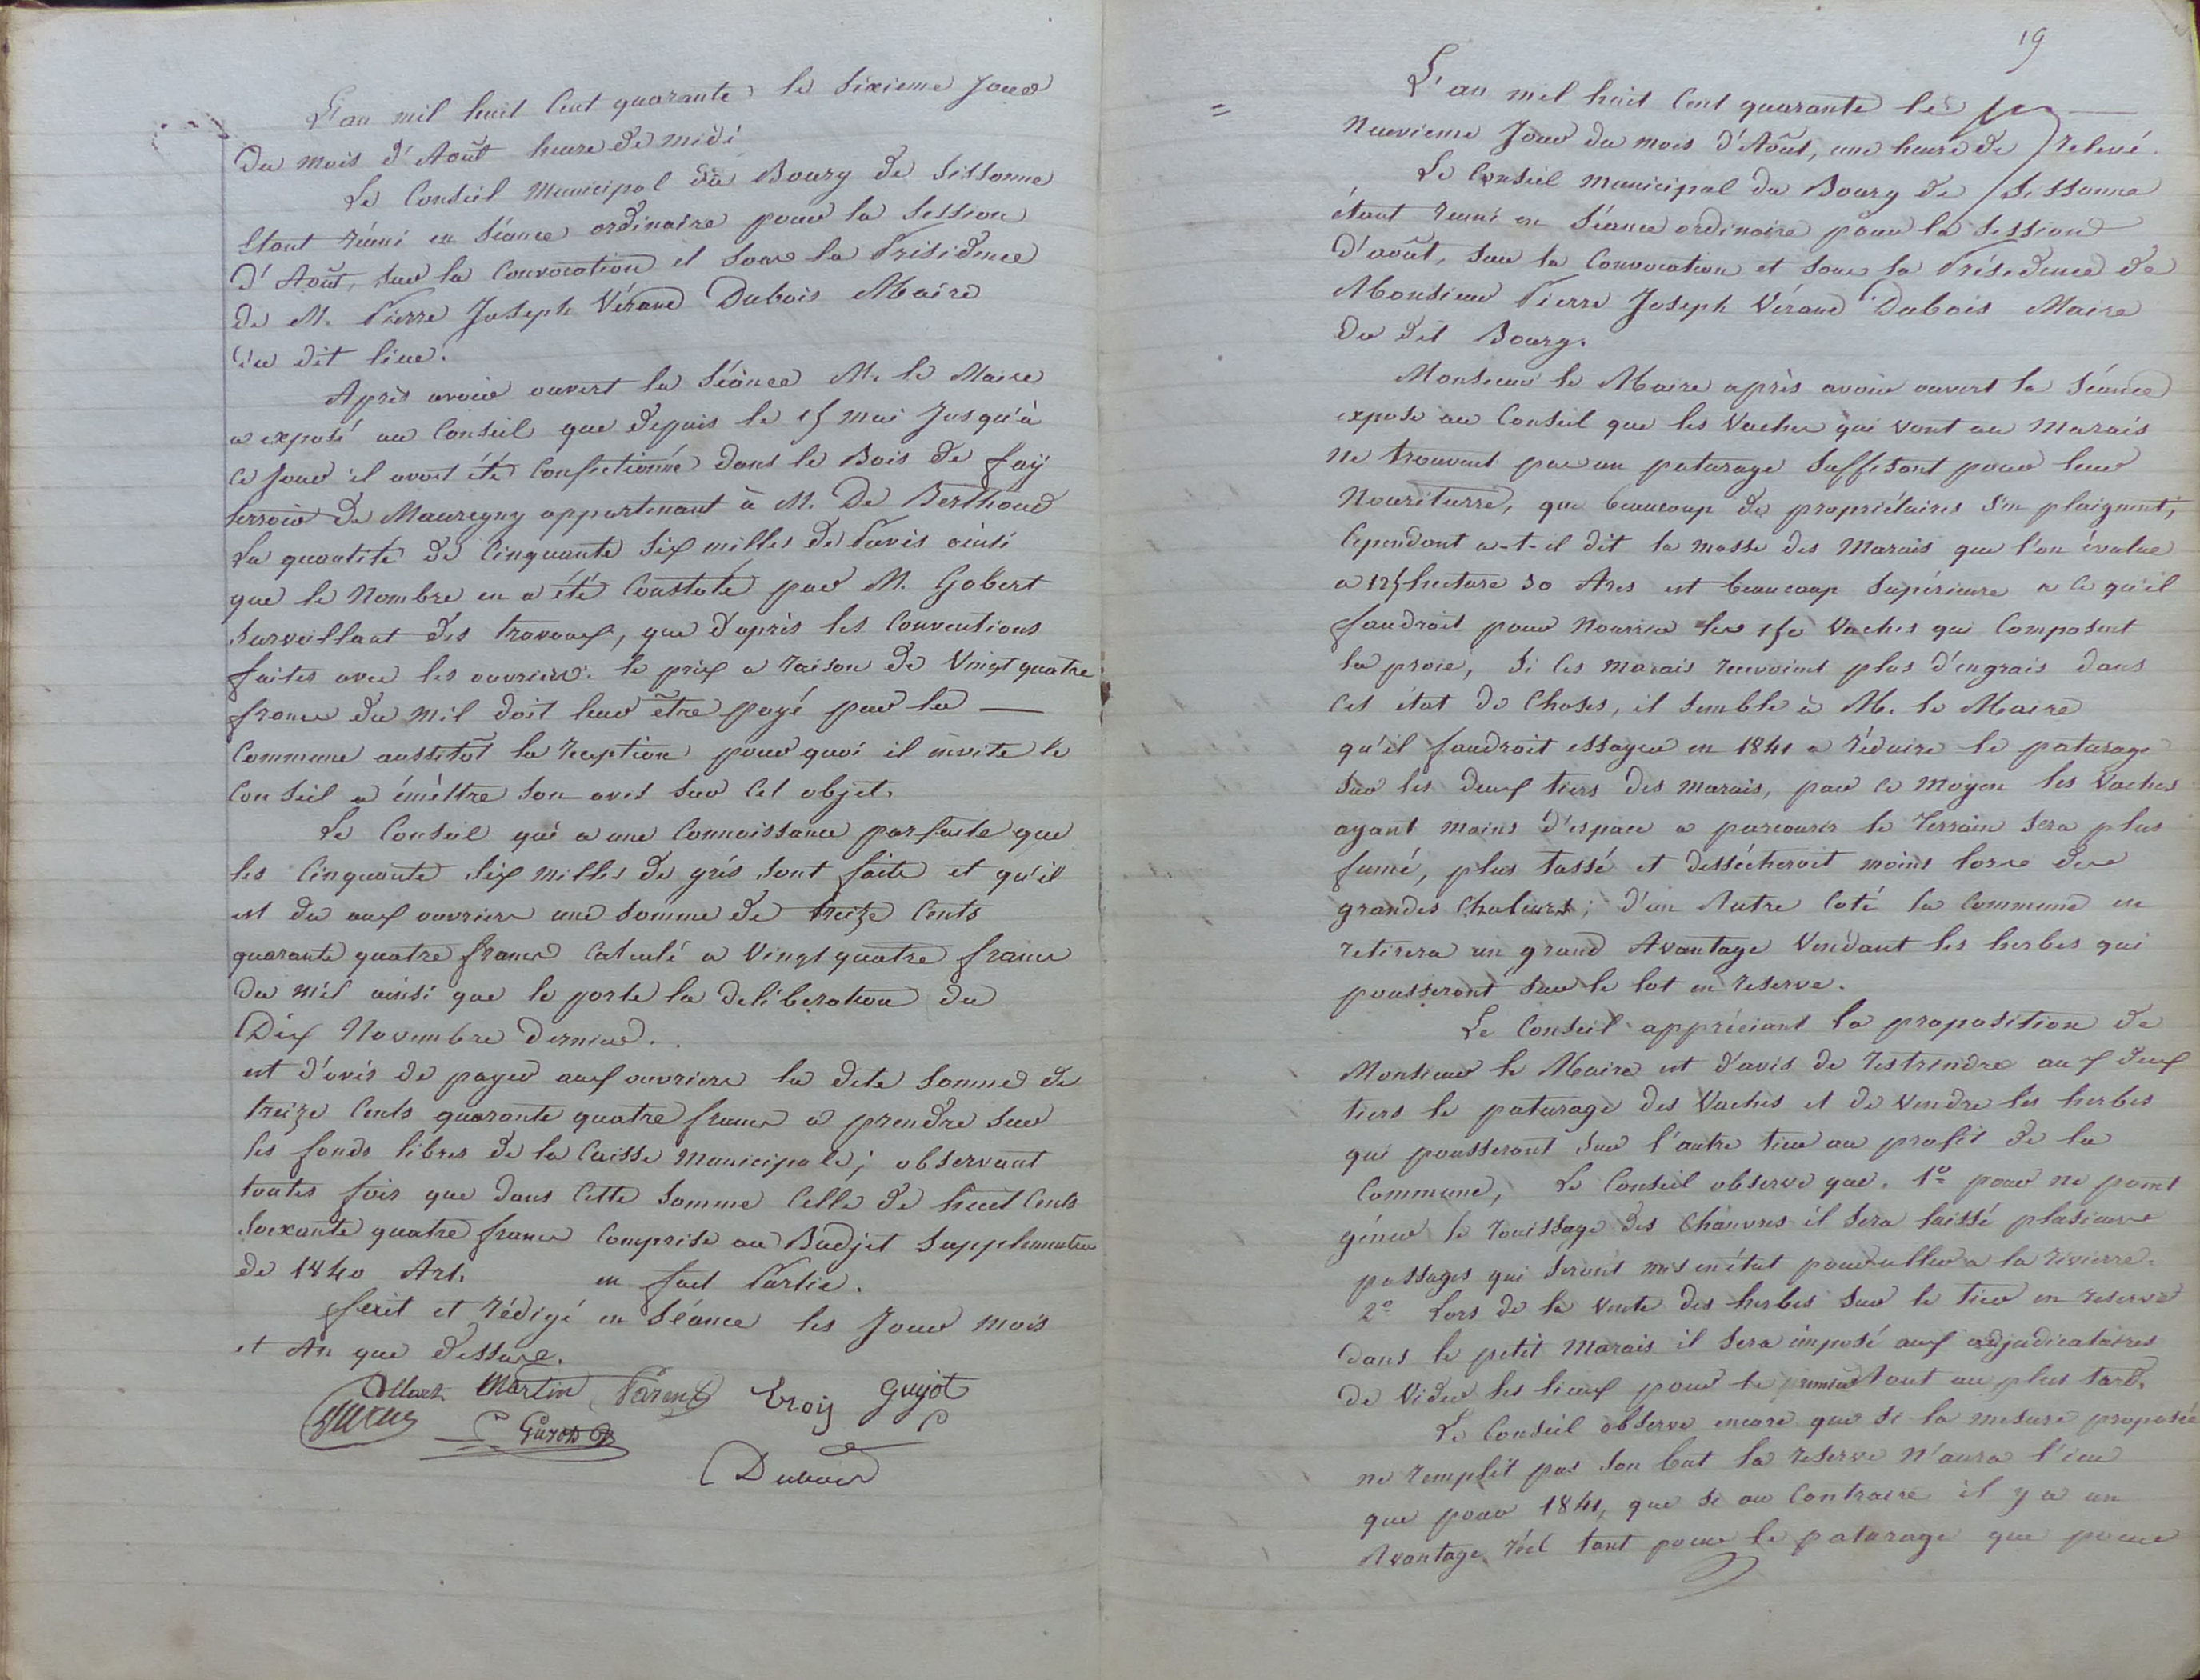 L'an mil huit Cent quarante le Sixieme Jour
du mois d'Août heure de midi
Le Conseil Municipal du Bourg de Sissonne
Etant réuni en Séance ordinaire pour la Session
d'Août, sur la Convocation et sous la Présidence
de M. Pierre Joseph Véraud Dubois Maire
du dit lieu.
Après avoir ouvert la Séance M. le Maire
a exposé au Conseil que depuis le 15 mai Jusqu'à
ce Jour il avoit été Confectionné dans le Bois de fay
terroir de Mauregny appartenant à M. De Berthoud
La quantité de Cinquante Six milles de Pavés ainsi
que le Nombre en a été Constaté par M. Gobert
Surveillant des travaux, que d'après les Conventions
faites avec les ouvriers le prix a raison de Vingt quatre
francs du mil doit leur être payé par la —
Commune aussitôt la reception pour quoi il invite le
Conseil a émèttre son avis sur Cet objet.
Le Conseil qui a une Connaissance parfaite que
les Cinquante Six milles de grés sont faite et qu'il
est du aux ouvriers une Somme de treize Cents
quarante quatre francs Calculé a Vingt quatre francs
du mil ainsi que le porte la deliberation du
Dix Novembre dernier.
est d'avis de payer aux ouvriers la dete Somme de
treize Cents quarante quatre francs a prendre sur
les fonds libres de la Caisse Municipale; observant
toutes fois que dans Cette Somme Celle de huit Cents
Soixante quatre francs Comprise au Budjet Supplementaire
de 1840 Art. en fait Partie.
fait et rédigé en Séance les Jour mois
et An que dessus.
Martin Parent Eroy Guyot
Dubois
19
= L'an mil huit Cent quarante le
Neuvieme Jour du mois d'Août, une heure de relevé.
Le Conseil municipal du Bourg de Sissonne
étant reuni en Séance ordinaire pour la Session
d'août, sur la Convocation et sous la Présidence de
Monsieur Pierre Joseph Véraud Dubois Maire
du dit Bourg.
Monsieur le Maire après avoir ouvert la Séance
expose au Conseil que les Vaches qui vont au Marais
ne trouvent pas un paturage Suffisant pour leur
Nouriturre, que beaucoup de propriétaires s'en plaignent,
Cependant a-t-il dit la masse des Marais que l'on évalue
a 125 hectare 30 Ares est beaucoup Supérieure a ce qu'il
faudroit pour Nourrir les 150 Vaches qui Composent
la proie, Si les marais recevoient plus d'engrais dans
Cet état de Choses, il semble à M. le Maire
qu'il faudroit essayer en 1841 a réduire le paturage
sur les deux tiers des marais, par ce Moyen les Vaches
ayant moins d'espace a parcourir le terrain sera plus
fumé, plus tassé et dessécheroit moins lors des
grandes Chaleurs; d'un Autre Coté la Commune en
retirera un grand Avantage Vendant les herbes qui
pousseront sur le lot en reserve.
Le Conseil appréciant la proposition de
Monsieur le Maire est d'avis de restrindre aux deux
tiers le paturage des Vaches et de Vendre les herbes
qui pousseront sur l'autre tier au profit de la
Commune, Le Conseil observe que. 1º pour ne point
géner le rouissage des Chanvres il sera laissé plusieurs
passages qui seront mis en état pour aller a la rivierre.
2º Lors de la Vente des herbes sur le tier en reserve
dans le petit Marais il sera imposé aux adjudicataires
de Vider les lieux pour le premier Aout au plus tard.
Le Conseil observe encore que si la mesure proposée
ne remplit pas son but la reserve N'aura lieu
que pour 1841, que si au Contraire il y a un
Avantage réel tant pour le paturage que pour